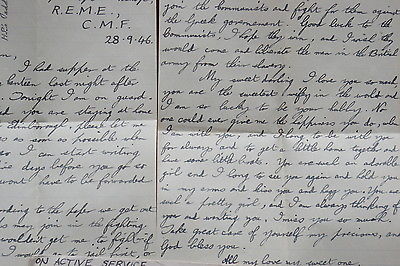 R.E.M.E.,
C.M.F.
28-9-46.
I had supper at the
canteen last night after
Tonight I am on guard.
you are staying at home
Edinborough, please let
as soon as possible
I can start writing
days before you go so
wont have to be forwarded
to the paper we got out
may join in the fighting.
wouldn't get me to fight if
I would
ON ACTIVE SERVICE
join the Communists and fight for them against
the Greek government. Good luck to the
Communists, I hope they win, and I wish they
would come and liberate the men in the British
army from their slavery.
My sweet darling I love you so much,
you are the sweetest wifey in the world and
I am so lucky to be your hubby. No
one could ever give me the happiness you do, when
I am with you, and I long to be with you
for always and to get a little home together and
have some little kids. You are such an adorable
girl and I long to see you again and hold you
in my arms and kiss you and hug you. You are
such a pretty girl, and I am always thinking of
you and wanting you, I miss you so much.
Take great care of yourself my precious, and
God bless you.
All my love my sweet one,